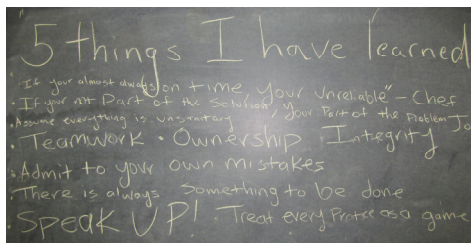 5 things I have learned
• "If your almost always on time, your unreliable" - Chef
• If your not Part of the Solution, your Part of the Problem Jo
• Assume everything is unsanitary
• Teamwork • Ownership Integrity
• Admit to your own mistakes
• There is always something to be done
• SPEAK UP! • Treat every as a game